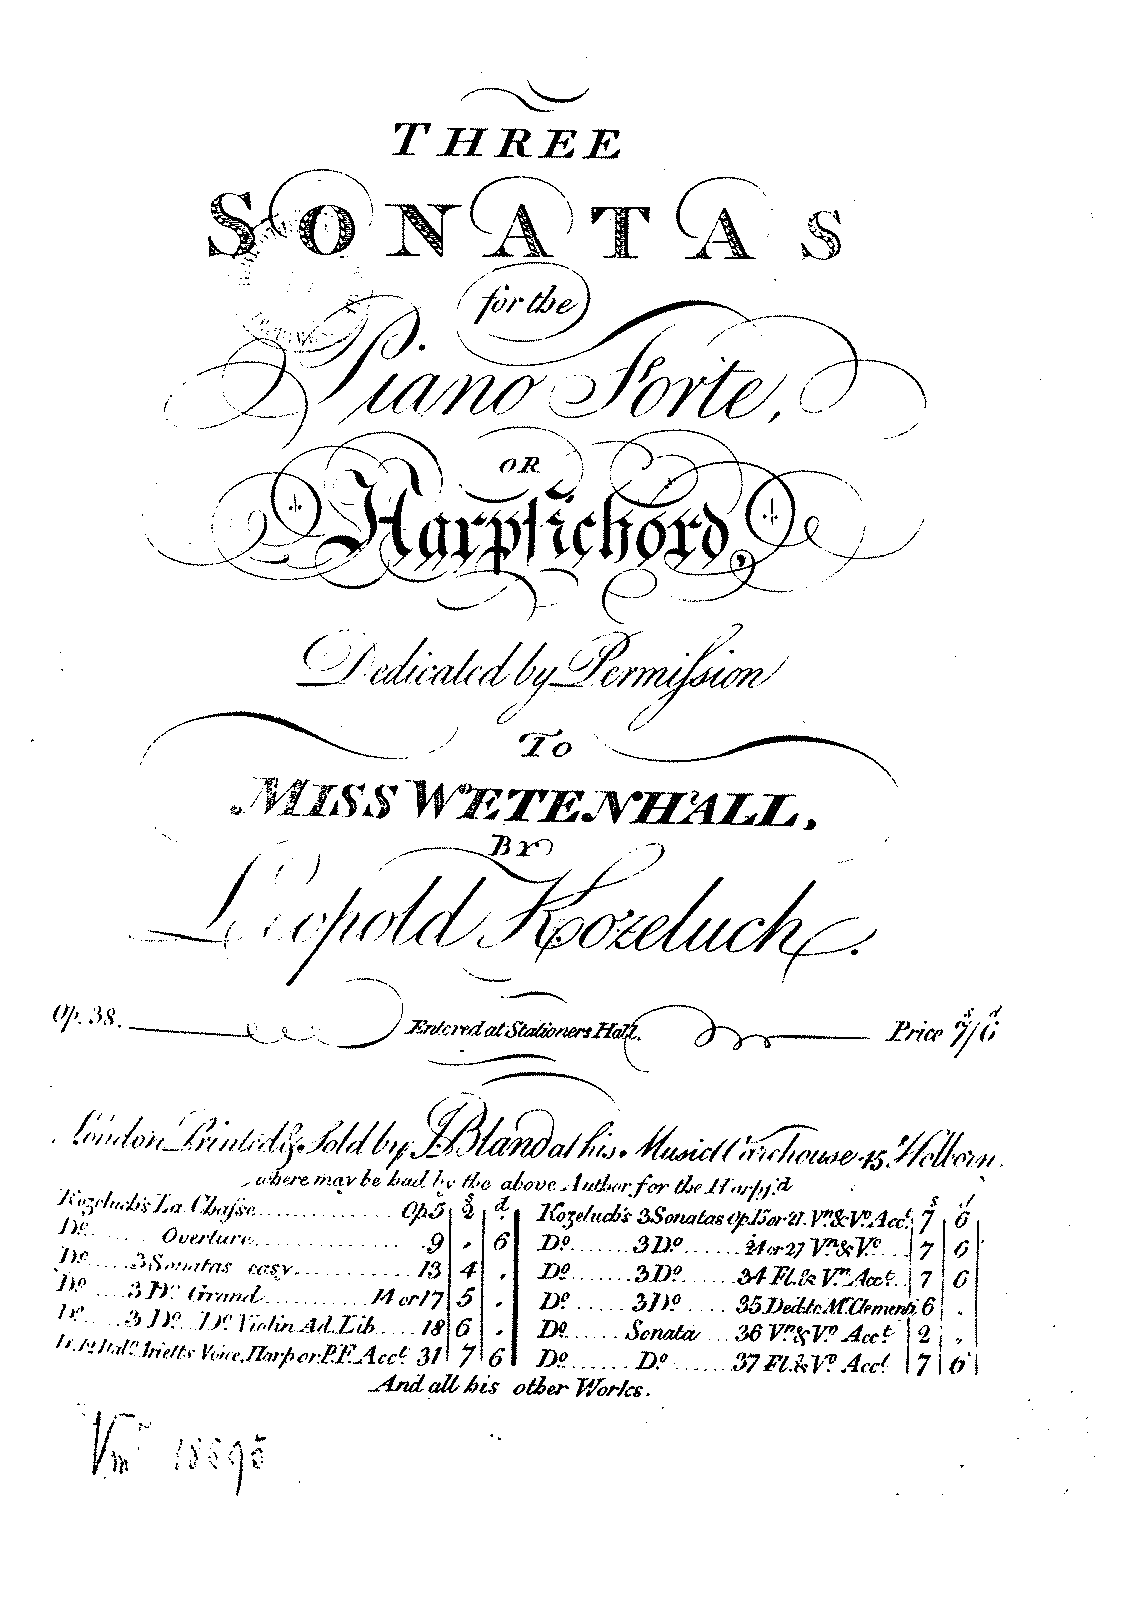 THREE
SONATAS
for the
Piano Forte,
OR
Harpsichord,
Dedicated by Permission
To
MISS WETENHALL.
BY
Leopold Kozeluch.
Op. 38. Entered at Stationers Hall. Price 7/6 s d
London Printed & Sold by J. Bland at his Music Warehouse 45, Holborn.
where may be had by the above Author for the Harpd.
Kozeluch's La Chasse Op 5 s 2 d .
Do. Overture 9 . 6
Do. 3 Sonatas easy 13 4 .
Do. 3 Do. Grand 14 or 17 5 .
Do. 3 Do. Do. Violin Ad. Lib 18 6 .
Italn. Arietts Voice, Harp or P.F. Acct. 31 7 6
Kozeluch's 3 Sonatas Op. 15 or 21. Vn. & Vo. Acct. s 7 d 6
Do. 3 Do. 24 or 27 Vn. & Vo. 7 6
Do. 3 Do. 34 Fl. & Vn. Acct. 7 6
Do. 3 Do. 35 Ded. to Mr. Clementi 6 .
Do. Sonata 36 Vn. & Vo. Acct. 2 .
Do. Do. 37 Fl. & Vo. Acct. 7 6
And all his other Works.
Vm